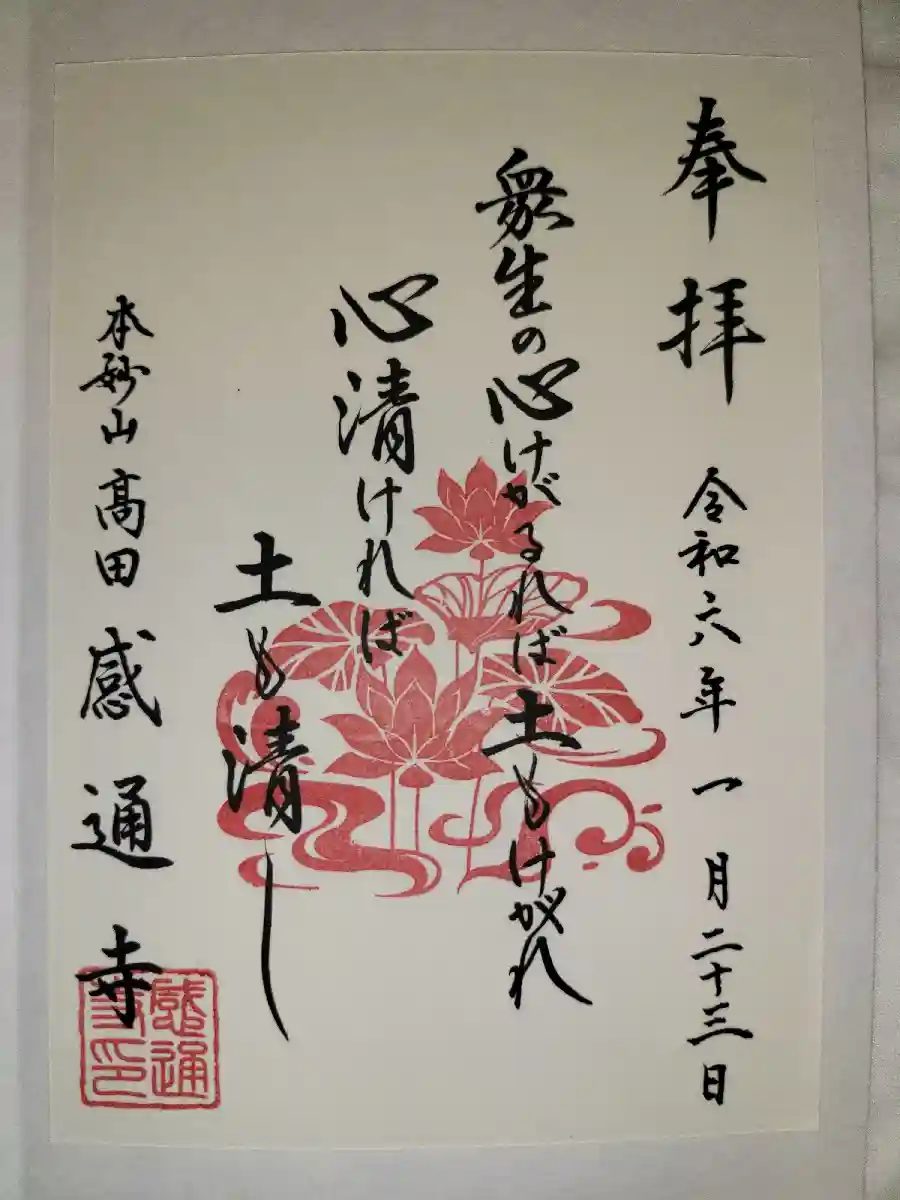 奉拝 令和六年 一月二十三日
衆生の心けがるれば土もけがれ
心清ければ
土も清し
本妙山 高田 感通寺
感通寺印